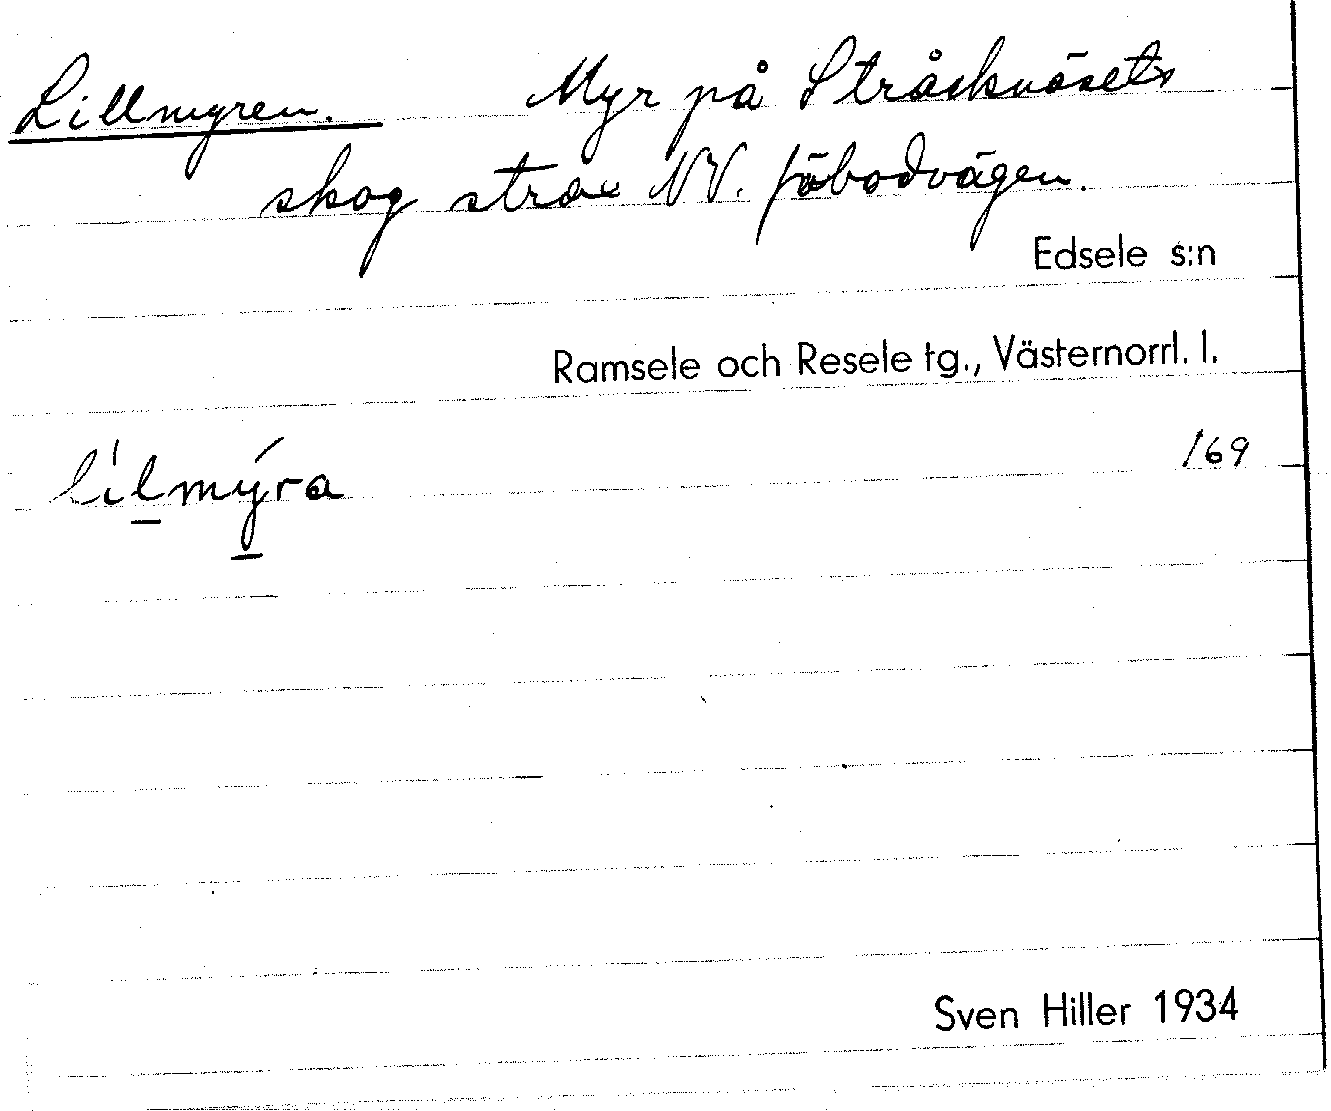 Lillmyren. Myr på Stråsknäsets
skog strax NV. fäbodvägen.
Edsele s:n
Ramsele och Resele tg., Västernorrl. l.
169
lílmýra
Sven Hiller 1934